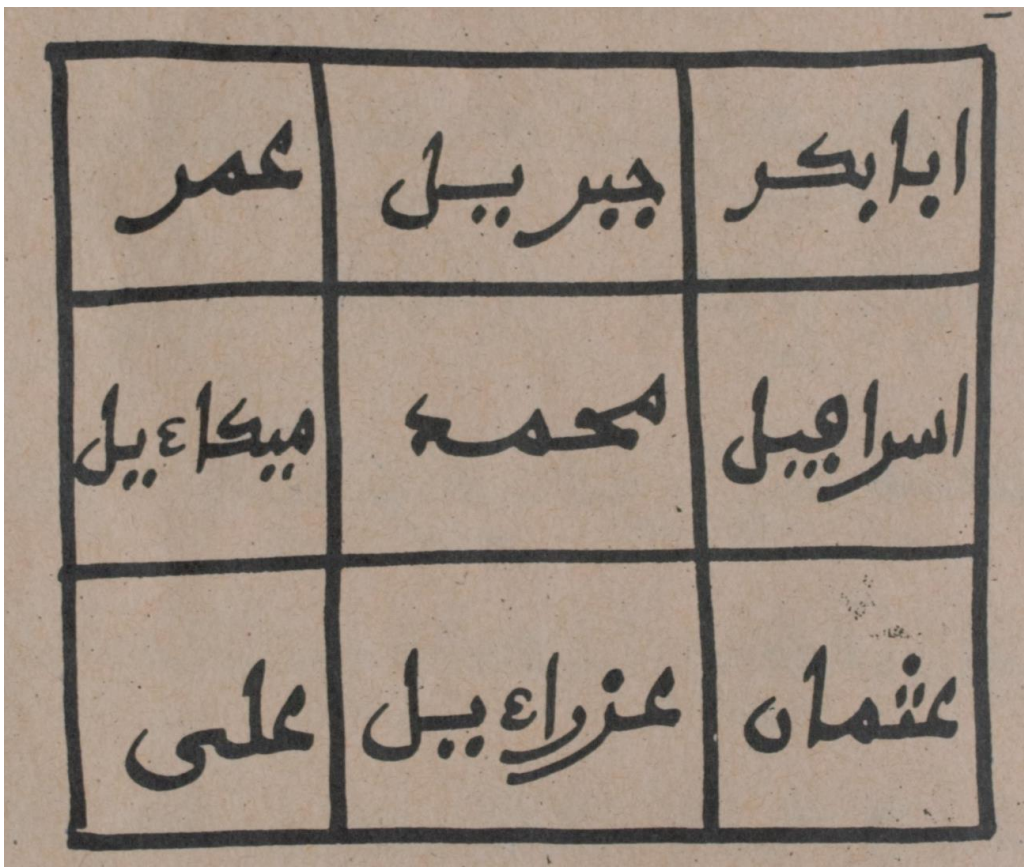 ابابكر جبرييل عمر
اسرافيل محمد ميكاءيل
عثمان عزراءيل على